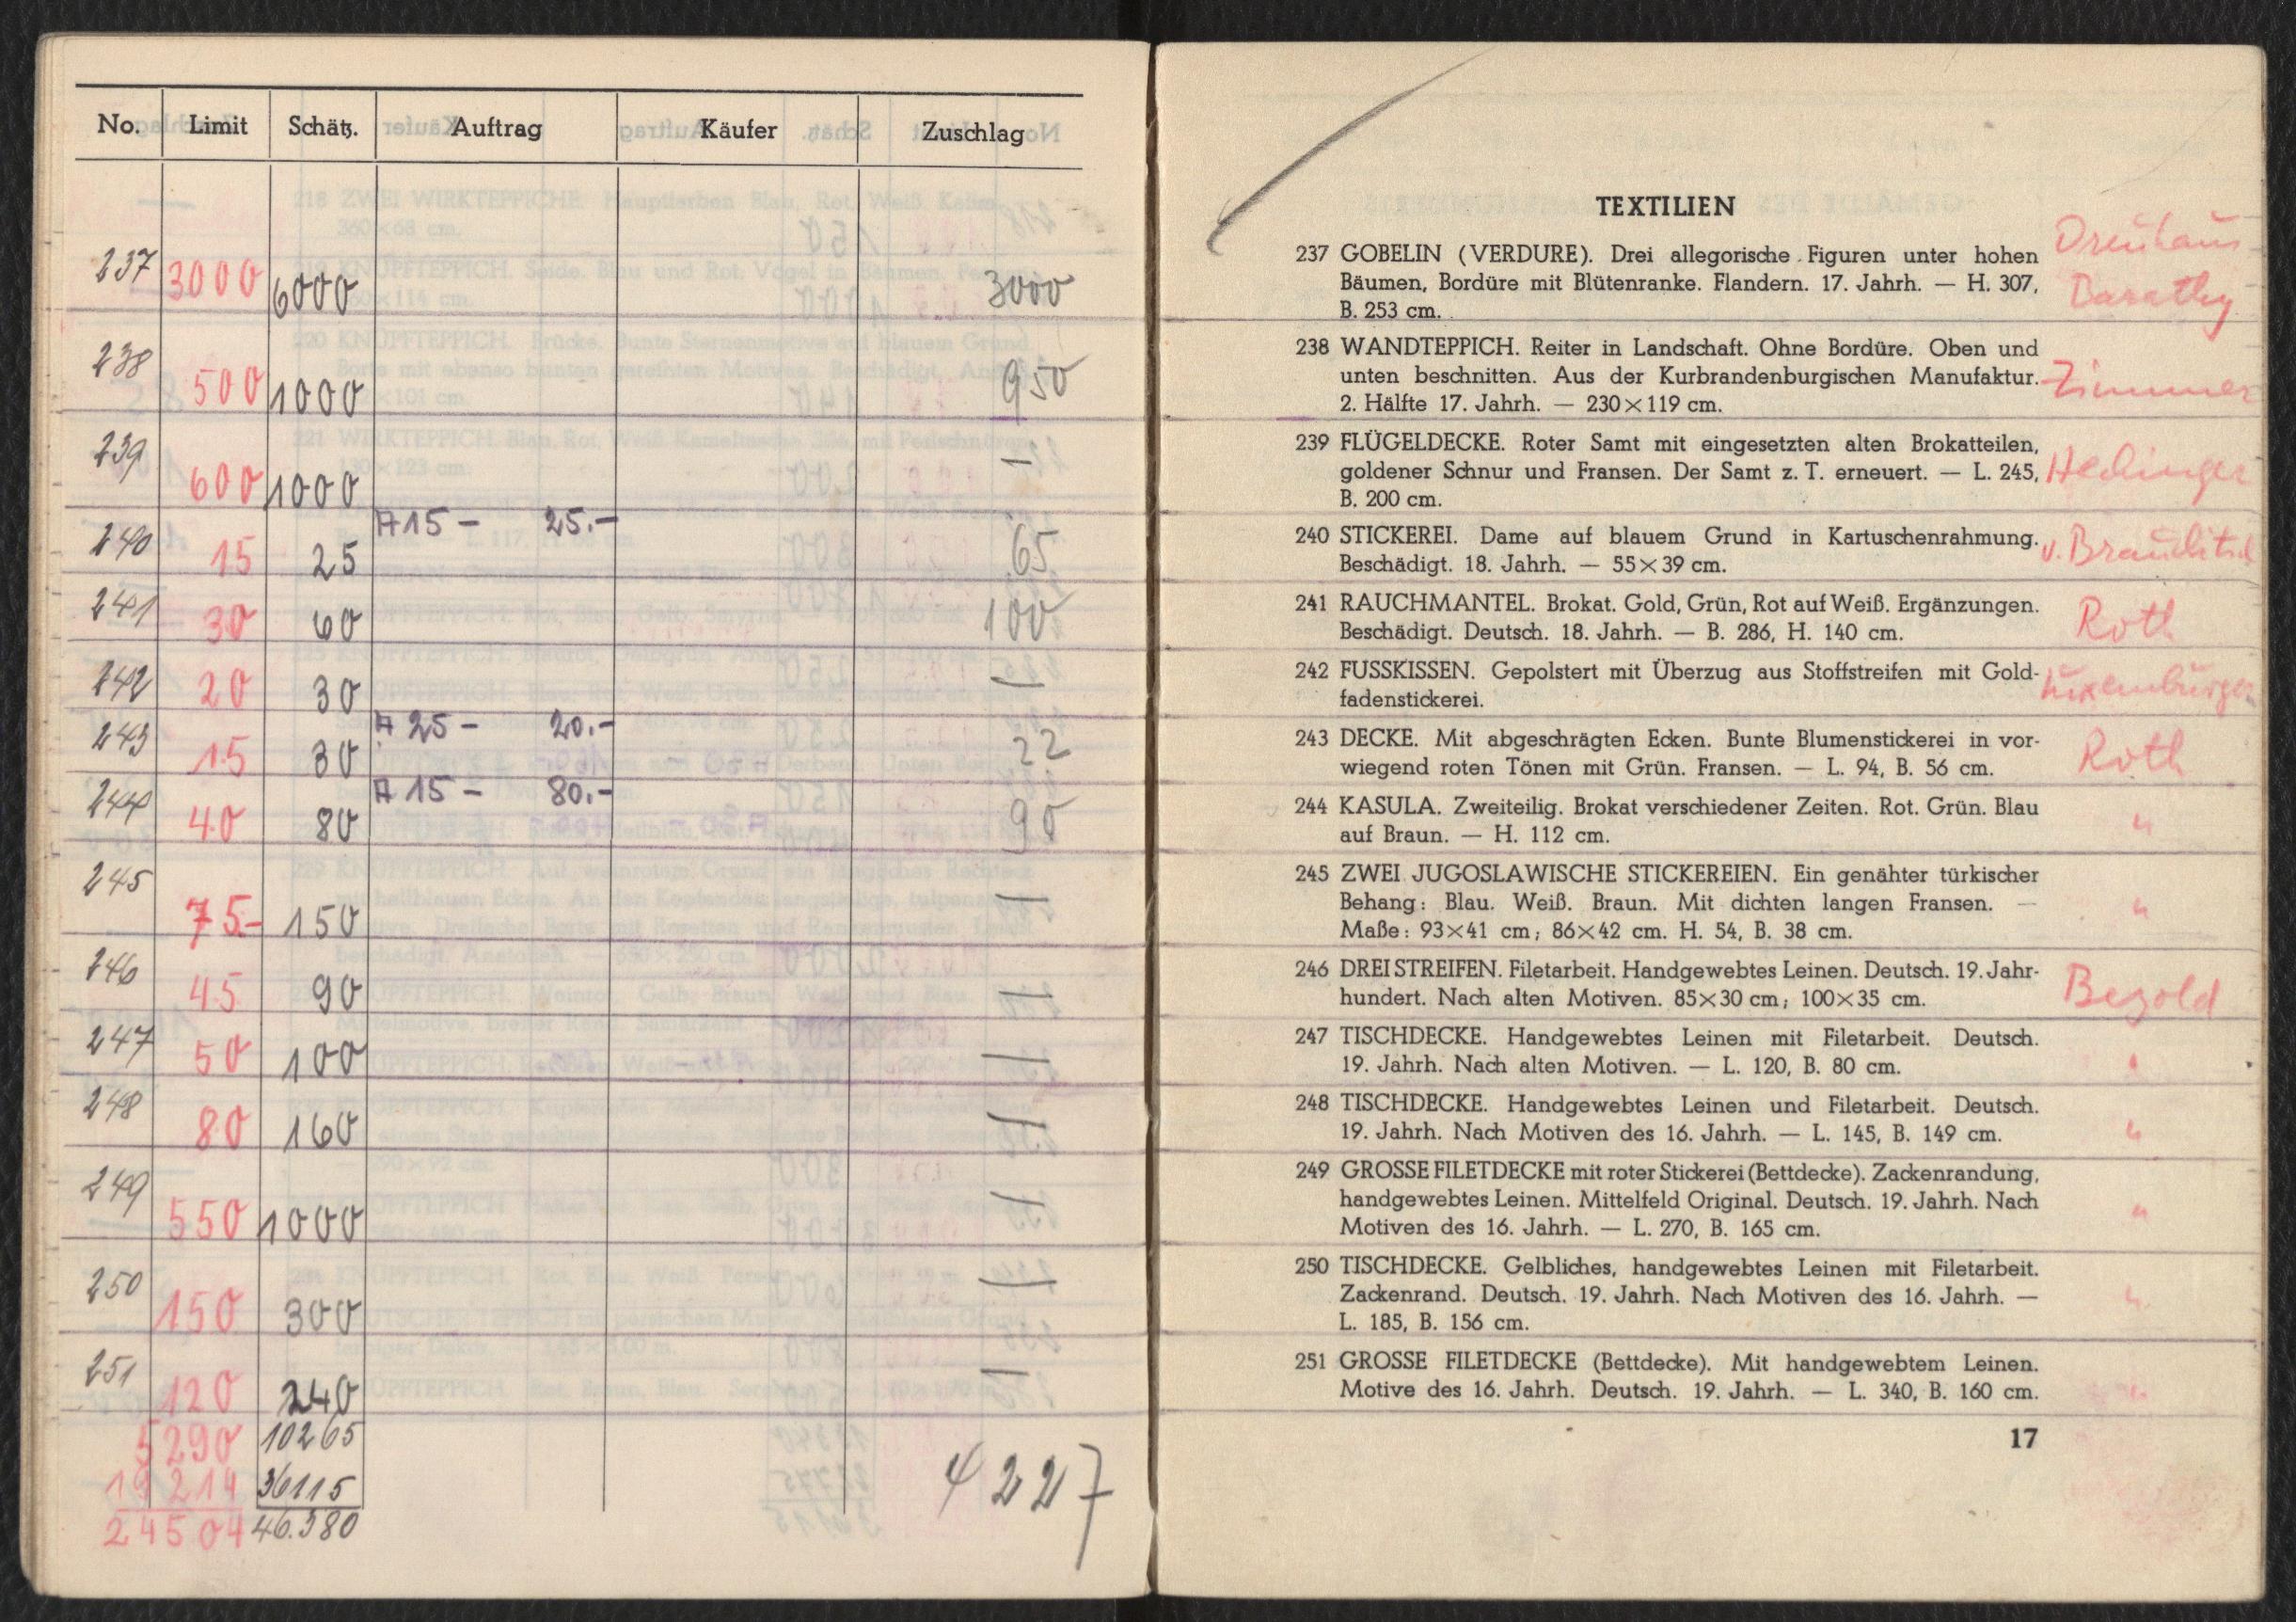 No. Limit Schätz. Auftrag Käufer Zuschlag
237 3000 6000 3000
238 500 1000 950
239 600 1000 —
A 15 - 25.-
240 15 25 65
241 30 60 100
242 20 30 —
A 25 - 20.-
243 15 30 22
A 15 - 80.-
244 40 80 90
245 75.- 150 —
246 45 90 —
247 50 100 —
248 80 160 —
249 550 1000 —
250 150 300 —
251 120 240 —
5290 10265
19214 36115
24504 46.380
4227
TEXTILIEN
237 GOBELIN (VERDURE). Drei allegorische Figuren unter hohen
Bäumen, Bordüre mit Blütenranke. Flandern. 17. Jahrh. — H. 307,
B. 253 cm.
238 WANDTEPPICH. Reiter in Landschaft. Ohne Bordüre. Oben und
unten beschnitten. Aus der Kurbrandenburgischen Manufaktur. Zimmer
2. Hälfte 17. Jahrh. — 230×119 cm.
239 FLÜGELDECKE. Roter Samt mit eingesetzten alten Brokatteilen,
goldener Schnur und Fransen. Der Samt z. T. erneuert. — L. 245, Hedinger
B. 200 cm.
240 STICKEREI. Dame auf blauem Grund in Kartuschenrahmung. v. Brauchitsch
Beschädigt. 18. Jahrh. — 55×39 cm.
241 RAUCHMANTEL. Brokat. Gold, Grün, Rot auf Weiß. Ergänzungen. Roth
Beschädigt. Deutsch. 18. Jahrh. — B. 286, H. 140 cm.
242 FUSSKISSEN. Gepolstert mit Überzug aus Stoffstreifen mit Gold- Luxemburger
fadenstickerei.
243 DECKE. Mit abgeschrägten Ecken. Bunte Blumenstickerei in vor- Roth
wiegend roten Tönen mit Grün. Fransen. — L. 94, B. 56 cm.
244 KASULA. Zweiteilig. Brokat verschiedener Zeiten. Rot. Grün. Blau "
auf Braun. — H. 112 cm.
245 ZWEI JUGOSLAWISCHE STICKEREIEN. Ein genähter türkischer
Behang: Blau. Weiß. Braun. Mit dichten langen Fransen. — "
Maße: 93×41 cm; 86×42 cm. H. 54, B. 38 cm.
246 DREI STREIFEN. Filetarbeit. Handgewebtes Leinen. Deutsch. 19. Jahr- Bezold
hundert. Nach alten Motiven. 85×30 cm; 100×35 cm.
247 TISCHDECKE. Handgewebtes Leinen mit Filetarbeit. Deutsch.
19. Jahrh. Nach alten Motiven. — L. 120, B. 80 cm. "
248 TISCHDECKE. Handgewebtes Leinen und Filetarbeit. Deutsch.
19. Jahrh. Nach Motiven des 16. Jahrh. — L. 145, B. 149 cm. "
249 GROSSE FILETDECKE mit roter Stickerei (Bettdecke). Zackenrandung,
handgewebtes Leinen. Mittelfeld Original. Deutsch. 19. Jahrh. Nach "
Motiven des 16. Jahrh. — L. 270, B. 165 cm.
250 TISCHDECKE. Gelbliches, handgewebtes Leinen mit Filetarbeit.
Zackenrand. Deutsch. 19. Jahrh. Nach Motiven des 16. Jahrh. — "
L. 185, B. 156 cm.
251 GROSSE FILETDECKE (Bettdecke). Mit handgewebtem Leinen.
Motive des 16. Jahrh. Deutsch. 19. Jahrh. — L. 340, B. 160 cm. "
17